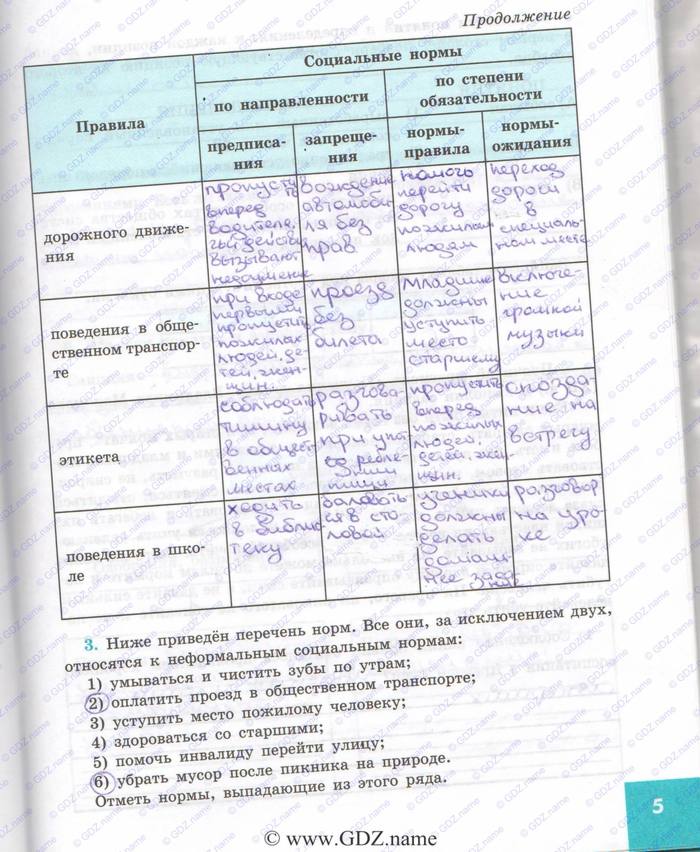 Продолжение
Правила
Социальные нормы
по направленности
по степени
обязательности
предписа-
ния
запреще-
ния
нормы-
правила
нормы-
ожидания
дорожного движе-
ния
пропустить
вперед
водителя,
чьи действ
вызывают
недоумение
вождение
автомоби-
ля без
прав
помочь
перейти
дорогу
пожилым
людям
переход
дороги
в
специаль-
ном месте
поведения в обще-
ственном транспор-
те
при входе
первыми
пропустить
пожилых
людей, де-
тей, жен-
щин.
проезд
без
билета
младшие
должны
уступить
место
старшему
включе-
ние
громкой
музыки
этикета
соблюдать
тишину
в общест-
венных
местах
разгова-
ривать
при упот-
реблении
пищи
пропустить
вперед
пожилых
людей,
детей, жен-
щин.
опозда-
ние на
встречу
поведения в шко-
ле
ходить
в библио
теку
баловать
ся в сто-
ловой
ученики
должны
делать
домаш-
нее зада
разговор
на уро-
ке
3. Ниже приведён перечень норм. Все они, за исключением двух,
относятся к неформальным социальным нормам:
1) умываться и чистить зубы по утрам;
2) оплатить проезд в общественном транспорте;
3) уступить место пожилому человеку;
4) здороваться со старшими;
5) помочь инвалиду перейти улицу;
6) убрать мусор после пикника на природе.
Отметь нормы, выпадающие из этого ряда.
5
© www.GDZ.name